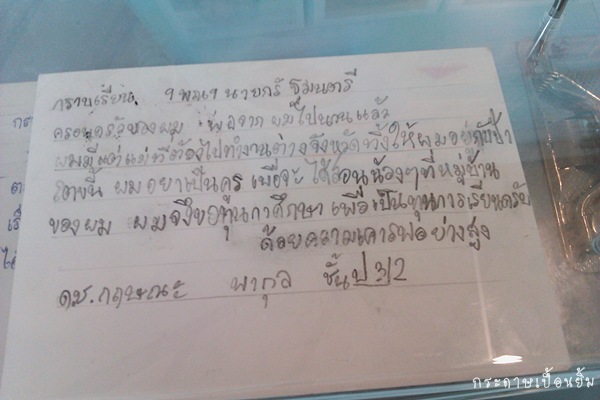 กราบเรียน ฯพณฯ นายกรัฐมนตรี
ครอบครัวของผม พ่อจาก ผมไปนานแล้ว
ผมมีแต่แม่ที่ต้องไปทำงานต่างจังหวัด ทิ้งให้ผมอยู่กับป้า
ผมอยาเป็นครู เพื่อจะได้สอนน้องๆที่หมู่บ้าน
ของผม ผมจึงขอทุนการศึกษา เพื่อเป็นทุนการเรียนครับ
ด้วยความเคารพอย่างสูง
ด.ช.กฤษณะ พากุล ชั้นป 3/2
กระดาษเปื้อนยิ้ม